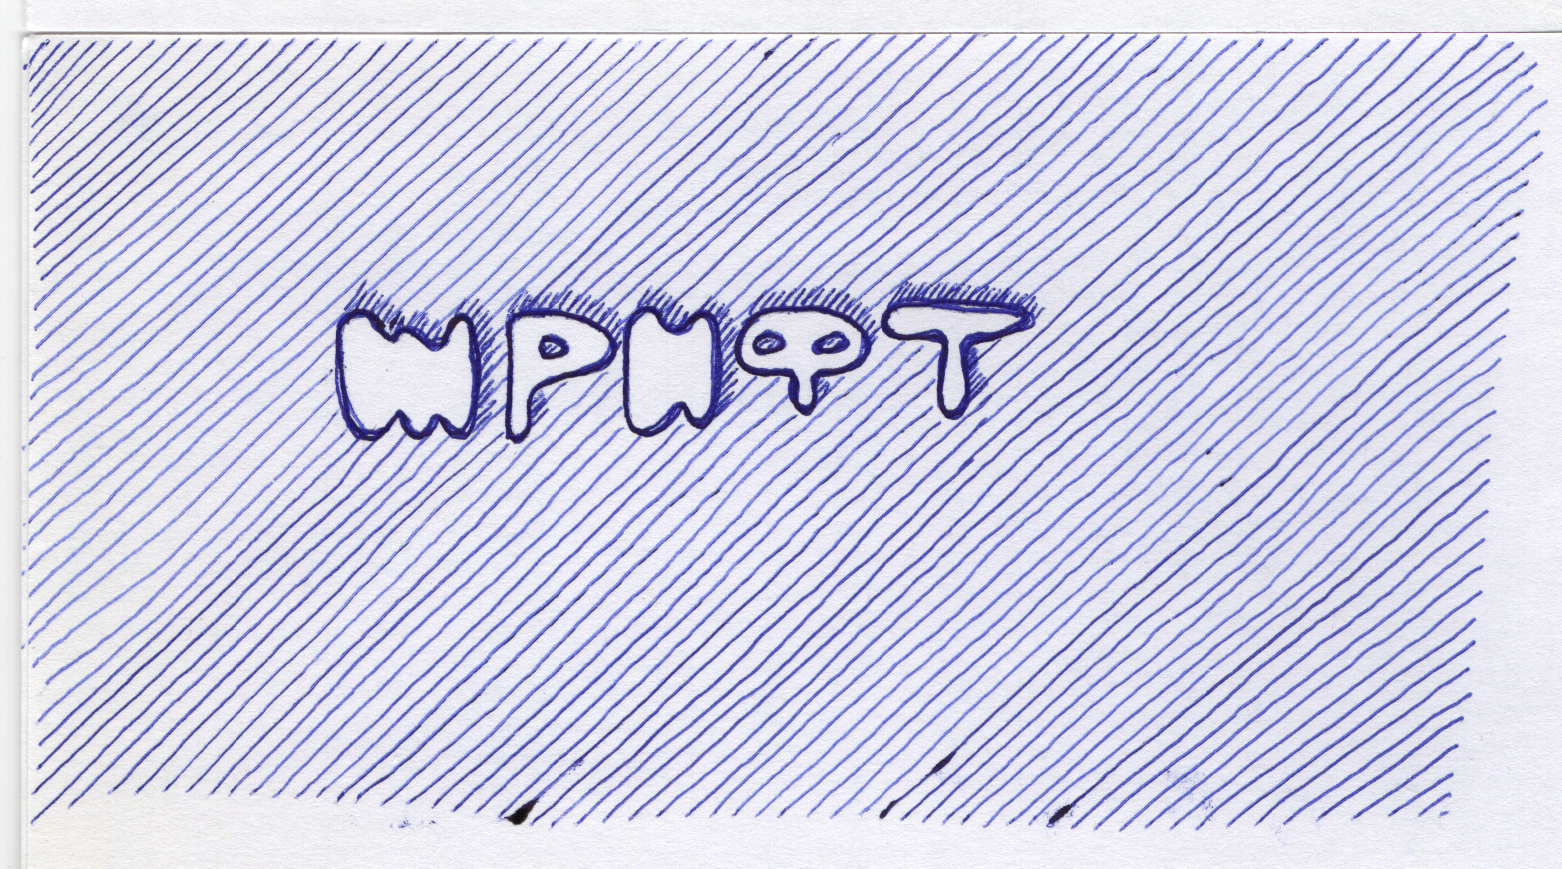 ШРИФТ